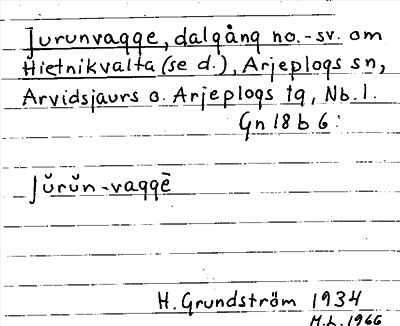 Jurunvagge, dalgång no.-sv. om
Hietnikvalta (se d.), Arjeplogs sn,
Arvidsjaurs o. Arjeplogs tg, Nb. l.
Gn 18 b 6:
Jŭrŭn-vaggē
H. Grundström 1934
M.b. 1966